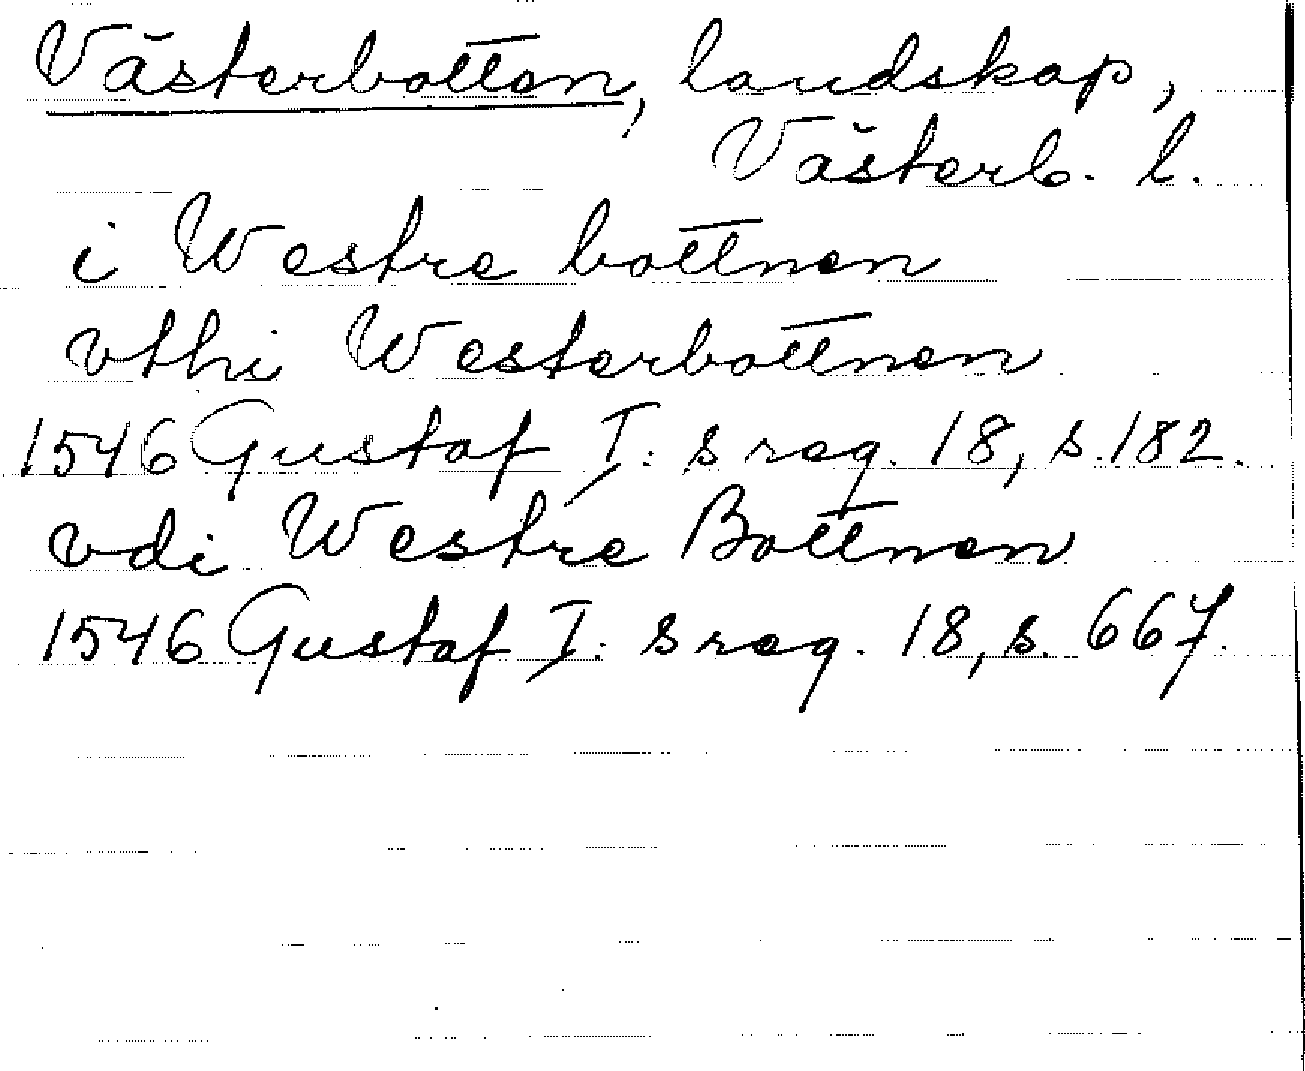 Västerbotten, landskap,
Västerb. l.
i Westre bottnen
vthi Westerbottnen
1546 Gustaf I:s reg. 18, s. 182.
vdi Westre Bottnen
1546 Gustaf I:s reg. 18, s. 667.